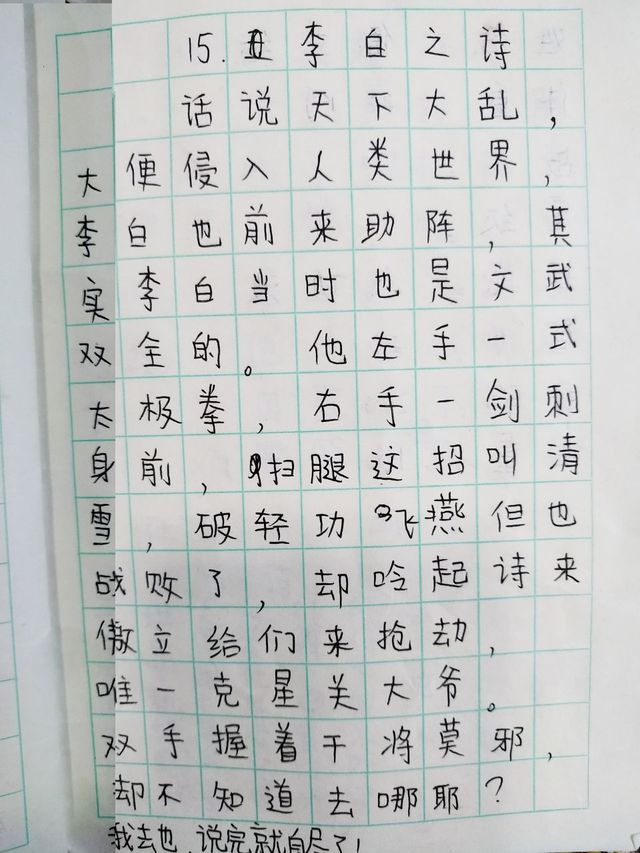 15.丑李白之诗
话说天下大乱，
大便侵入人类世界，
李白也前来助阵，其
实李白当时也是文武
双全的。他左手一式
太极拳，右手一剑刺
身前，扫腿这招叫清
雪，破轻功飞燕但也
战败了，却吟起诗来
傲立给们来抢劫，
唯一克星关大爷。
双手握着干将莫邪，
却不知道去哪耶？
我去也，说完就自尽了！